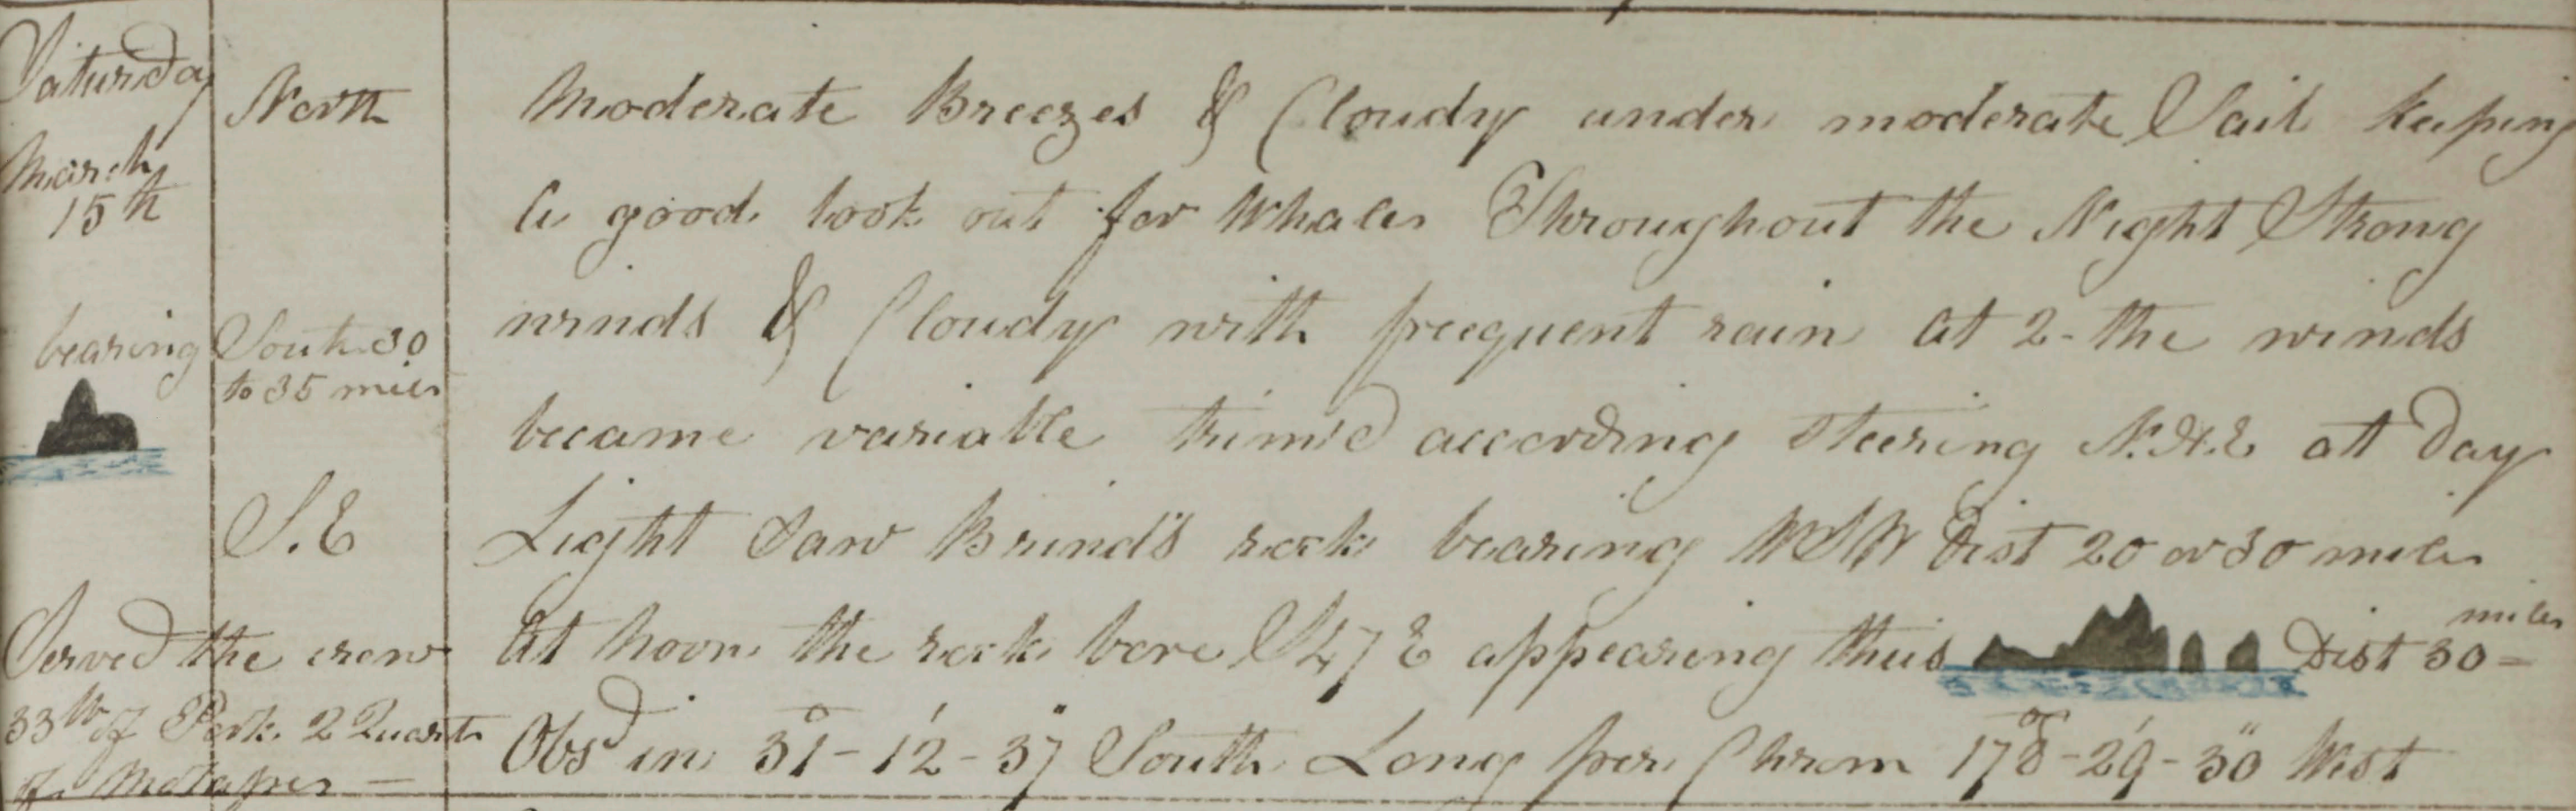 Saturday
March
15th
bearing
Served the crew
33lb of Pork 2 Quarts
of Molasses —
North
South 30
to 35 miles
S. E
Moderate Breezes & Cloudy under moderate Sail keeping
a good look out for Whales Throughout the Night Strong
winds & Cloudy with freequent rain at 2 - the winds
became variable trim'd according Steering N.N.E at Day
Light Saw Brind's rock bearing WSW Dist 20 or 30 miles
At Noon the rock bore S 47 E appearing thus Dist 30 = miles
Obsd in 31° - 12' - 37" South Long per Chrom 178° - 29' - 30" West